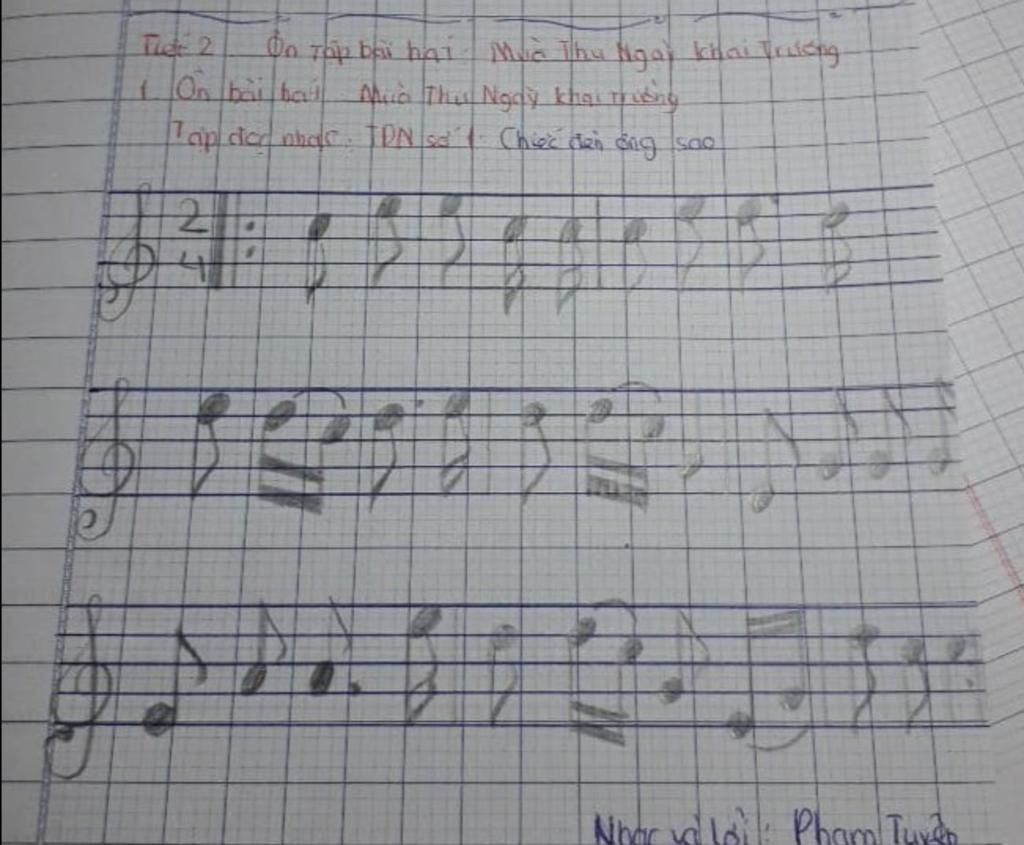 Tiết 2 Ôn Tập bài hát: Mùa Thu Ngày Khai Trường
1 Ôn bài hát Mùa Thu Ngày khai trường
Tập đọc nhạc: TĐN số 1: Chiếc đèn ông sao
2
4
Nhạc và lời: Phạm Tuyên